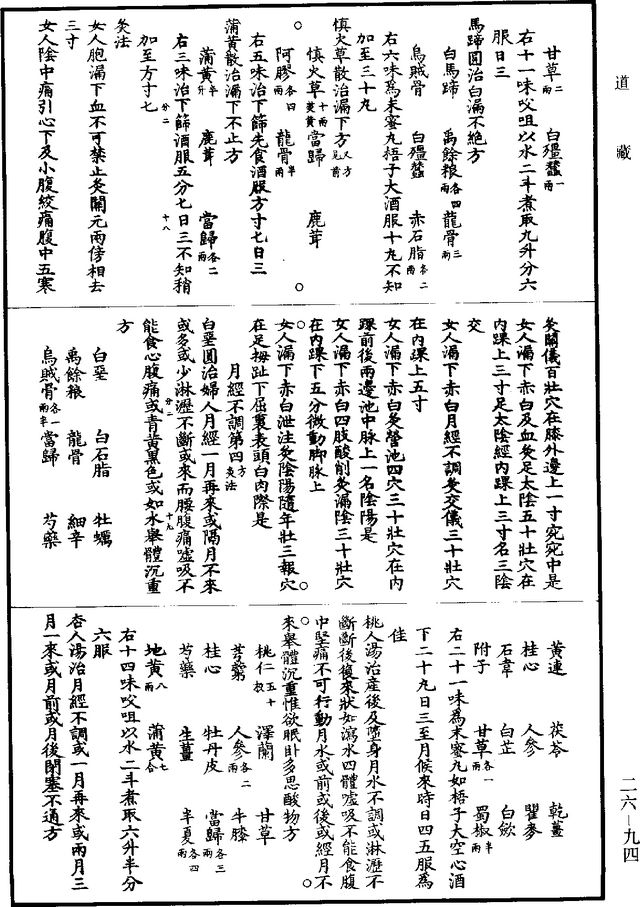 道藏
甘草二兩　白殭蠶一兩
右十一味㕮咀以水二斗煮取九升分六
服日三
馬蹄圓治白漏不絕方
白馬蹄　禹餘粮各四兩　龍骨三兩
烏賊骨　白殭蠶　赤石脂各二兩
右六味為末蜜丸梧子大酒服十丸不知
加至三十丸
慎火草散治漏下方又方見前
慎火草十兩熬黃　當歸　鹿茸
阿膠各四兩　龍骨半兩
右五味治下篩先食酒服方寸七日三
蒲黃散治漏下不止方
蒲黃半升　鹿茸　當歸各二兩
右三味治下篩酒服五分七日三不知稍
加至方寸七
分二　十八
灸法
女人胞漏下血不可禁止灸關元兩傍相去
三寸
女人陰中痛引心下及小腹絞痛腹中五寒
灸關儀百壯穴在膝外邊上一寸宛宛中是
女人漏下赤白及血灸足太陰五十壯穴在
內踝上三寸足太陰經內踝上三寸名三陰
交
女人漏下赤白月經不調灸交儀三十壯穴
在內踝上五寸
女人漏下赤白灸營池四穴三十壯穴在內
踝前後兩邊池中脉上一名陰陽是
女人漏下赤白四肢酸削灸漏陰三十壯穴
在內踝下五分微動脚脉上
女人漏下赤白泄注灸陰陽隨年壯三報穴
在足拇趾下屈裏表頭白肉際是
月經不調第四方灸法
白堊圓治婦人月經一月再來或隔月不來
或多或少淋瀝不斷或來而腰腹痛噓吸不
分三　十九
能食心腹痛或青黃黑色或如水舉體沉重
方
白堊　白石脂　牡蠣
禹餘粮　龍骨　細辛
烏賊骨各一兩半　當歸　芍藥
黃連　茯苓　乾薑
桂心　人參　瞿麥
石韋　白芷　白斂
附子　甘草各一兩　蜀椒半兩
右二十一味為末蜜丸如梧子大空心酒
下二十九日三至月候來時日四五服為
佳
桃人湯治產後及墮身月水不調或淋瀝不
斷斷後復來狀如瀉水四體噓吸不能食腹
中堅痛不可行動月水或前或後或經月不
來舉體沉重惟欲眠卧多思酸物方
桃仁五十枚　澤蘭　甘草
芎藭　人參各二兩　牛膝
桂心　牡丹皮　當歸各三兩
芍藥　生薑　半夏各四兩
地黃八兩　蒲黃七合
右十四味㕮咀以水二斗煮取六升半分
六服
杏人湯治月經不調或一月再來或兩月三
月一來或月前或月後閉塞不通方
二六－九四